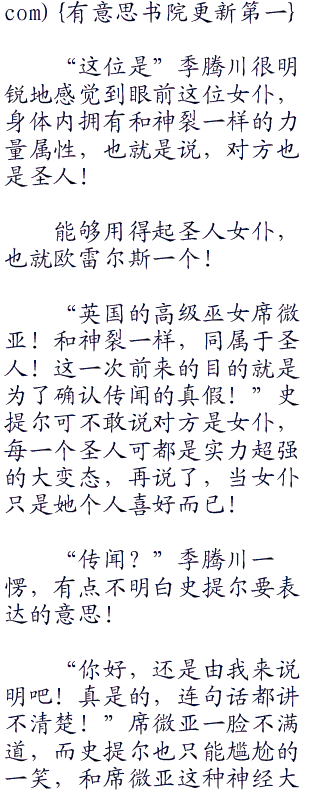 com) {有意思书院更新第一}
“这位是”季腾川很明
锐地感觉到眼前这位女仆，
身体内拥有和神裂一样的力
量属性，也就是说，对方也
是圣人！
能够用得起圣人女仆，
也就欧雷尔斯一个！
“英国的高级巫女席微
亚！和神裂一样，同属于圣
人！这一次前来的目的就是
为了确认传闻的真假！”史
提尔可不敢说对方是女仆，
每一个圣人可都是实力超强
的大变态，再说了，当女仆
只是她个人喜好而已！
“传闻？”季腾川一
愣，有点不明白史提尔要表
达的意思！
“你好，还是由我来说
明吧！真是的，连句话都讲
不清楚！”席微亚一脸不满
道，而史提尔也只能尴尬的
一笑，和席微亚这种神经大